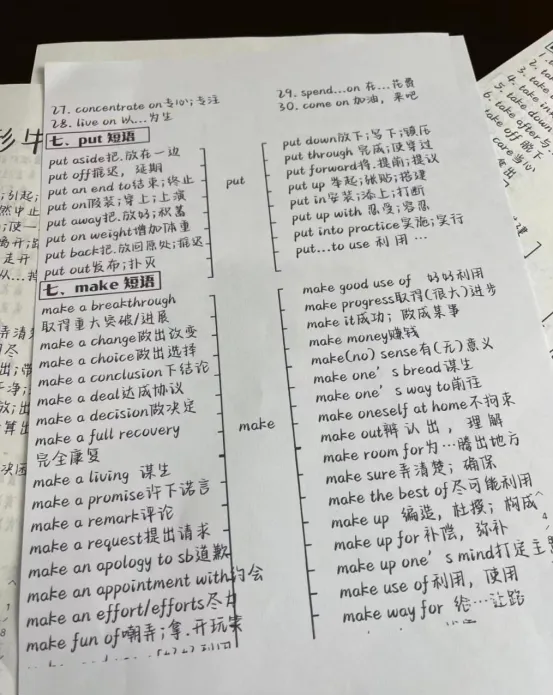 27. concentrate on 专心;专注
28. live on 以...为生
29. spend...on 在...花费
30. come on 加油，来吧
七、put 短语
put aside把.放在一边
put off推迟，延期
put an end to结束;终止
put on假装;穿上;上演
put away把.放好;积蓄
put on weight增加体重
put back把.放回原处;推迟
put out发布;扑灭
put
put down放下;写下;镇压
put through 完成;使穿过
put forward将.提前;提议
put up 举起;张贴;搭建
put in安装;添上;打断
put up with 忍受;容忍
put into practice实施;实行
put...to use 利用…
七、make 短语
make a breakthrough
取得重大突破/进展
make a change做出改变
make a choice做出选择
make a conclusion下结论
make a deal达成协议
make a decision做决定
make a full recovery
完全康复
make a living 谋生
make a promise许下诺言
make a remark评论
make a request提出请求
make an apology to sb道歉
make an appointment with约会
make an effort/efforts尽力
make fun of嘲弄;拿.开玩笑
make
make good use of 好好利用
make progress取得(很大)进步
make it成功；做成某事
make money赚钱
make(no) sense有(无)意义
make one's bread谋生
make one's way to前往
make oneself at home不拘束
make out辨认出，理解
make room for为…腾出地方
make sure弄清楚；确保
make the best of尽可能利用
make up 编造，杜撰；构成
make up for补偿，弥补
make up one's mind打定主
make use of利用，使用
make way for 给…让路